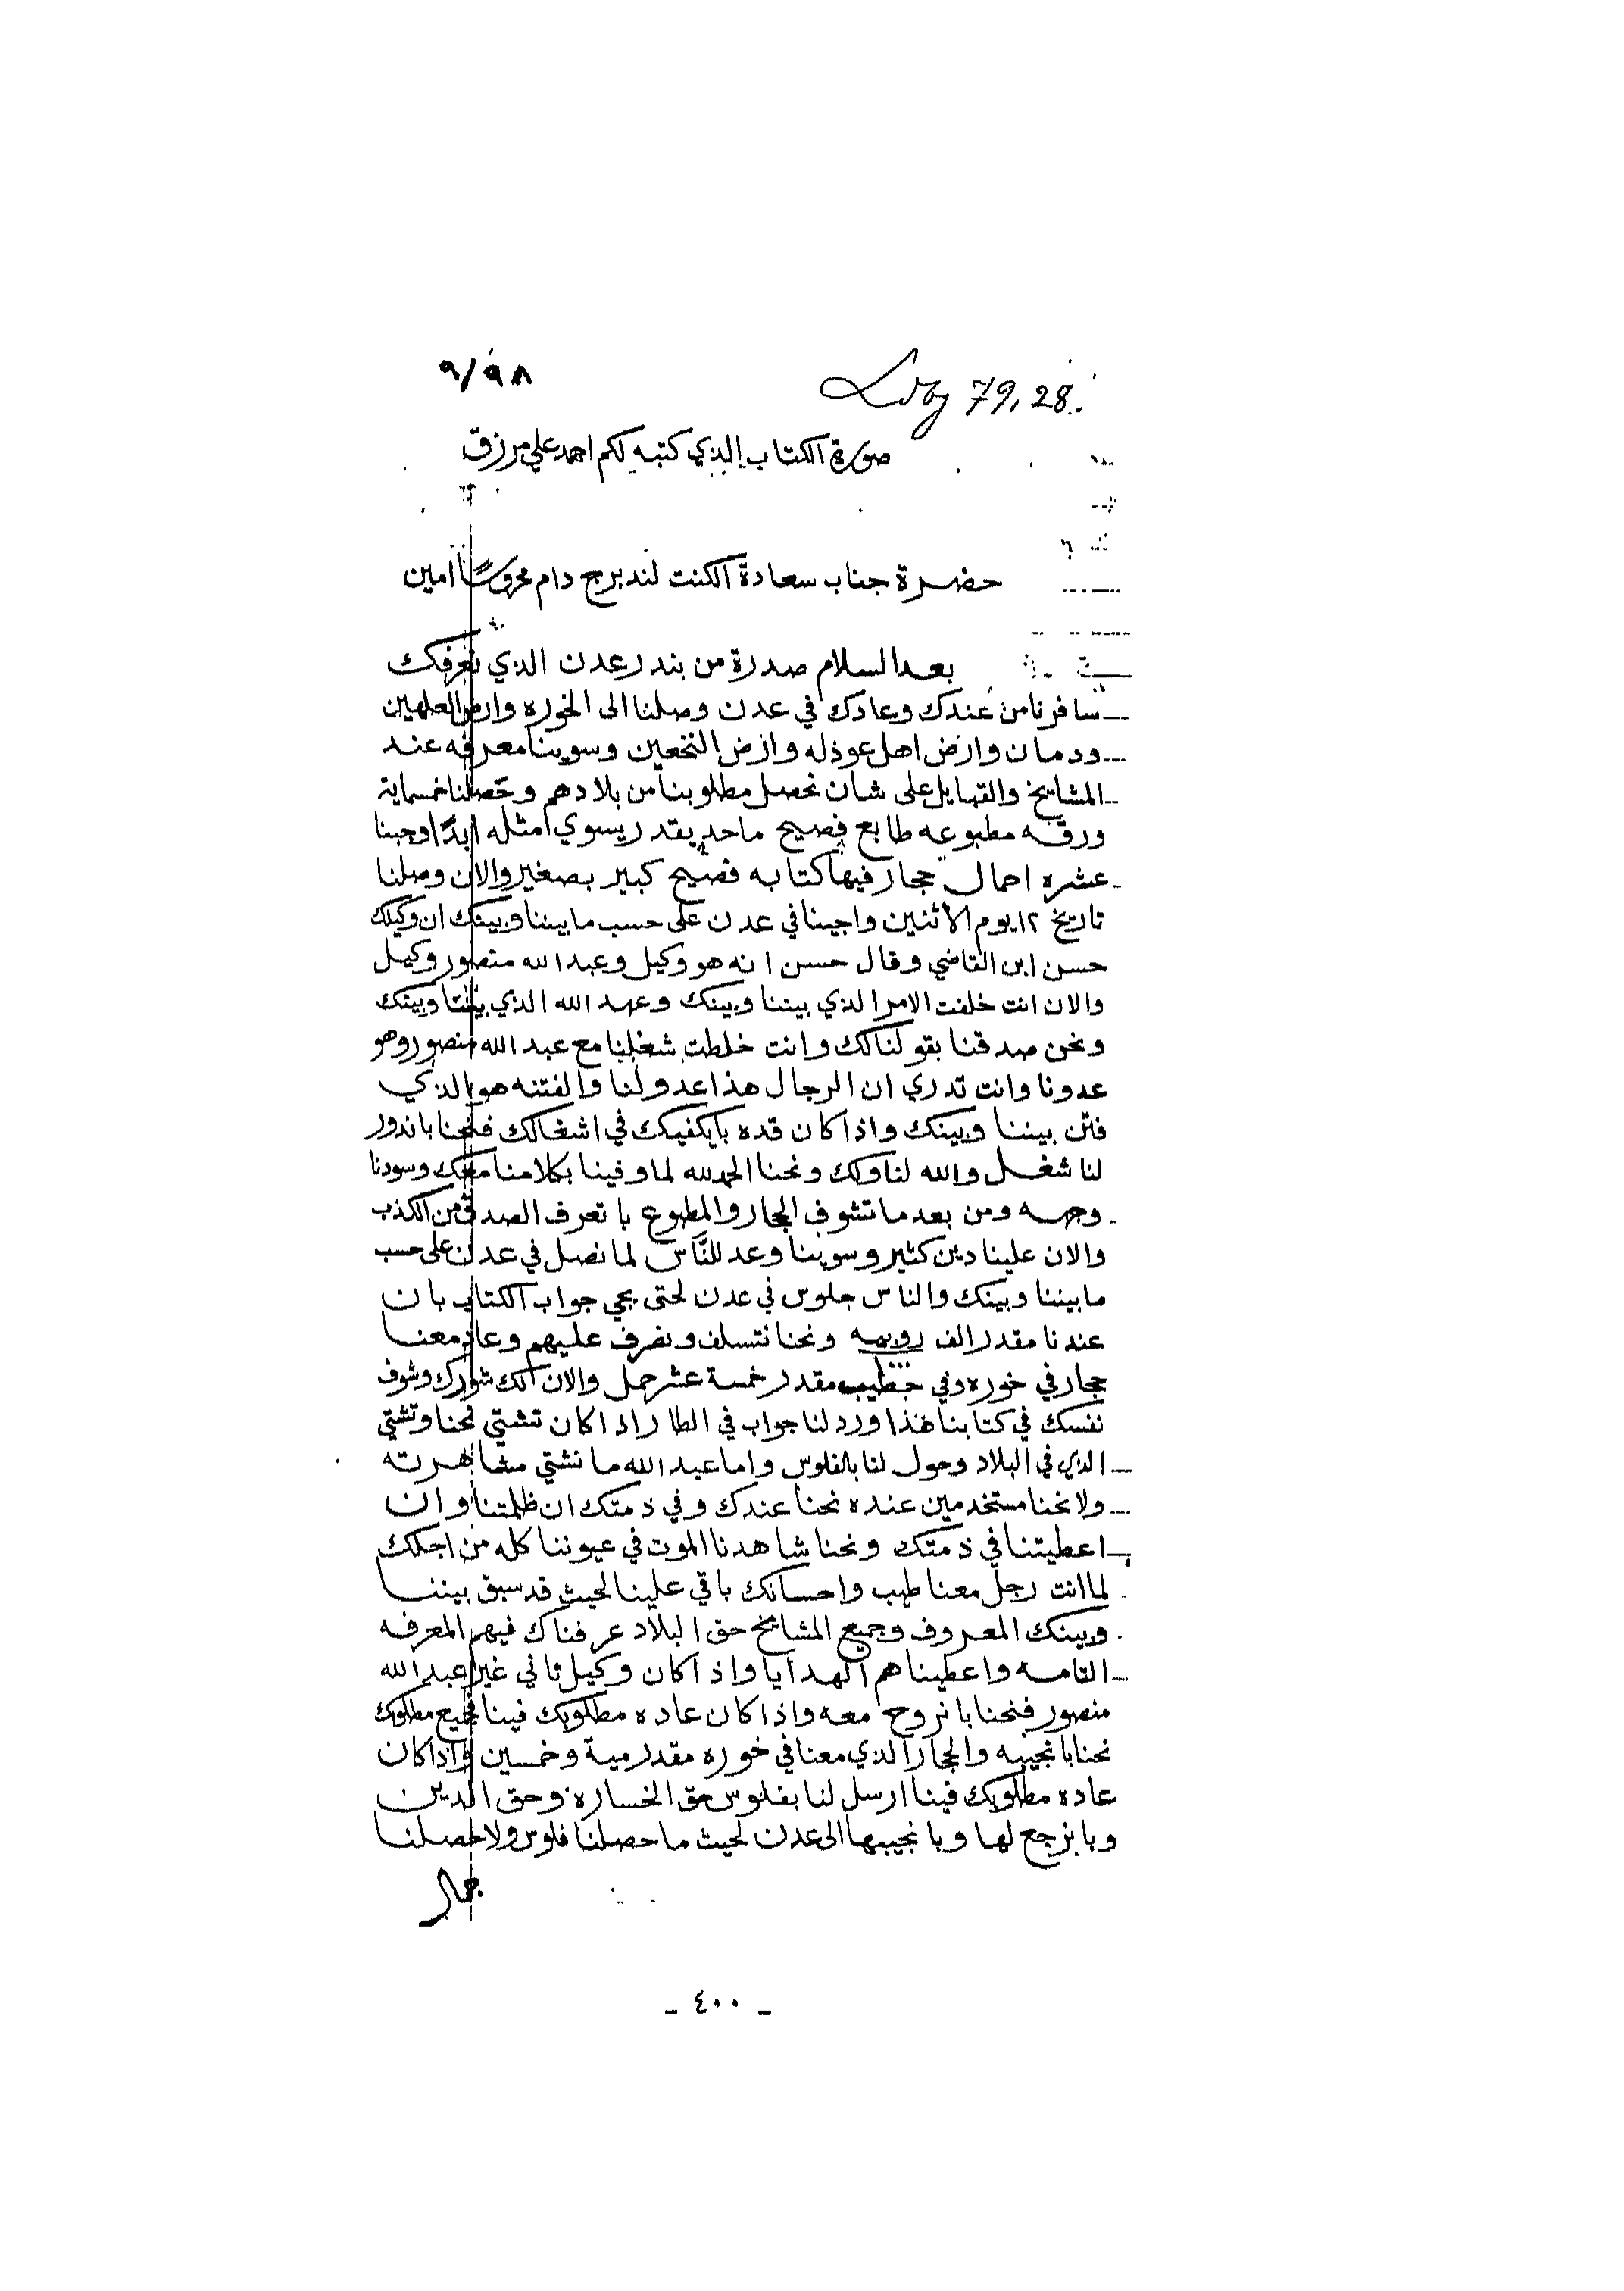 ٩/٩٨
Ldbg 79, 28.
صورة الكتاب الذي كتبه لكم احمد علي مرزق
حضرة جناب سعادة الكنت لندبرج دام محروسًا امين
بعد السلام صدرة من بندر عدن الذي نعرفك
سافرنا من عندك وعادك في عدن وصلنا الى الخوره وارض
ودمان وارض اهل عوذله وارض النخعين وسوينا معرفه عند
المشايخ والقبايل على شان نحصل مطلوبنا من بلادهم وحصلنا خمسماية
ورقه مطبوعه طابع فصيح ماحد يقدر يسوي امثله ابدًا وجبنا
عشره احمال حجار فيها كتابه فصيح كبير بصغير والان وصلنا
تاريخ ١٢ يوم الاثنين واجينا في عدن على حسب ما بيننا وبينك ان وكيلك
حسن ابن القاضي وقال حسن انه هو وكيل وعبد الله منصور وكيل
والان انت خلفت الامر الذي بيننا وبينك وعهد الله الذي بيننا وبينك
ونحن صدقنا بقولنا لك وانت خلطت شغلنا مع عبد الله منصور وهو
عدونا وانت تدري ان الرجال هذا عدو لنا والفتنه هو الذي
فتن بيننا وبينك واذا كان قده بايكفيك في اشغالك فنحنا باندور
لنا شغل والله لنا ولك ونحنا الحمد لله لما وفينا بكلامنا معك وسودنا
وجهه ومن بعد ما تشوف الحجار والمطبوع با تعرف الصدق من الكذب
والان علينا دين كثير وسوينا وعد للنّاس لما نصل في عدن على حسب
ما بيننا وبينك والناس جلوس في عدن لحتى يجي جواب الكتاب بان
عندنا مقدر الف روبيه ونحنا نتسلف ونصرف عليهم وعاد معنا
حجار في خوره وفي مقدر خمسة عشر حمل والان لك شورك وشوف
نفسك في كتابنا هذا ورد لنا جواب في الطار اذا كان تشتي نحنا وتشتي
الذي في البلاد وحول لنا بالفلوس واما عبد الله ما نشتي مشاهرته
ولا نحنا مستخدمين عنده نحنا عندك وفي ذمتك ان ظلمتنا وان
اعطيتنا في ذمتك ونحنا شاهدنا الموت في عيوننا كله من اجلك
لما انت رجل معنا طيب واحسانك باقي علينا لحيث قد سبق بيننا
وبينك المعروف وجميع المشايخ حق البلاد عرفناك فيهم المعرفه
التامه واعطيناهم الهدايا واذا كان وكيل ثاني غير عبد الله
منصور فنحنا بانروح معه واذا كان عاده مطلوبك فينا فجميع مطلوبك
نحنا بانجيبه والحجار الذي معنا في خوره مقدر مية وخمسين واذا كان
عاده مطلوبك فينا ارسل لنا بفلوس حق الخساره وحق الدين
وبانرجع لها وبانجيبها الى عدن لحيث ما حصلنا فلوس ولا حصلنا
جمال
- ٤٠٠ -